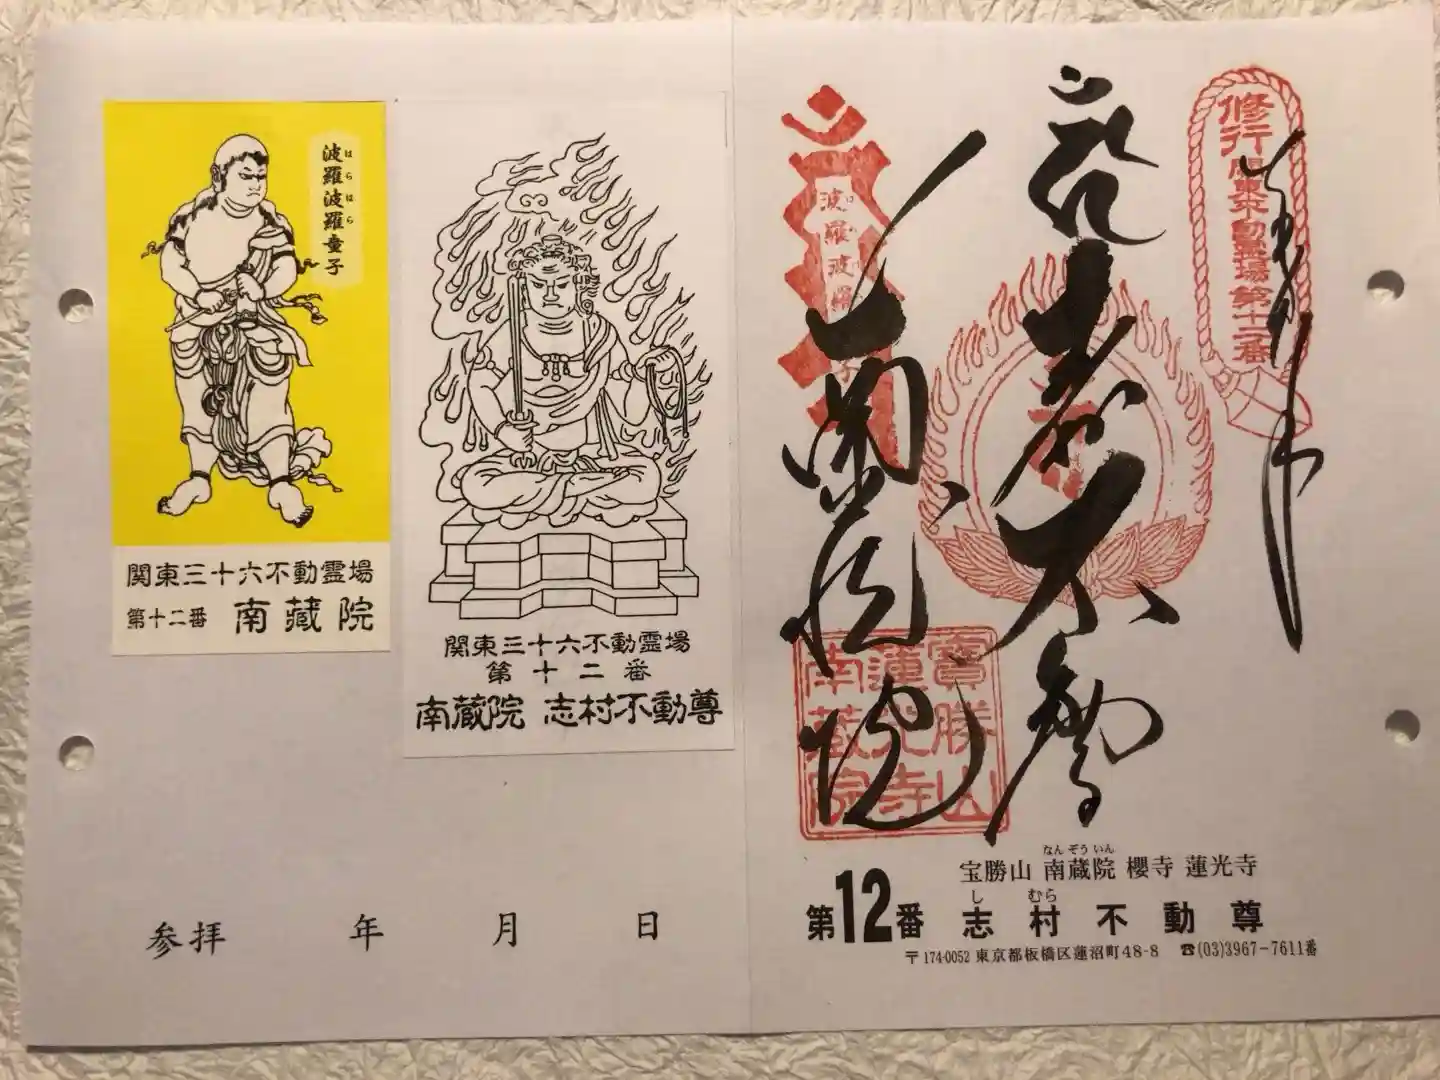 波羅波羅童子
はらはら
関東三十六不動霊場
第十二番 南蔵院
関東三十六不動霊場
第十二番
南蔵院 志村不動尊
参拝 年 月 日
修行 関東不動霊場第十二番
志村不動尊
波羅波羅
南蔵院
寶勝山
蓮光寺
南蔵院
なんぞういん
宝勝山 南蔵院 櫻寺 蓮光寺
し むら
第12番 志村不動尊
〒174-0052 東京都板橋区蓮沼町48-8 ☎(03)3967-7611番